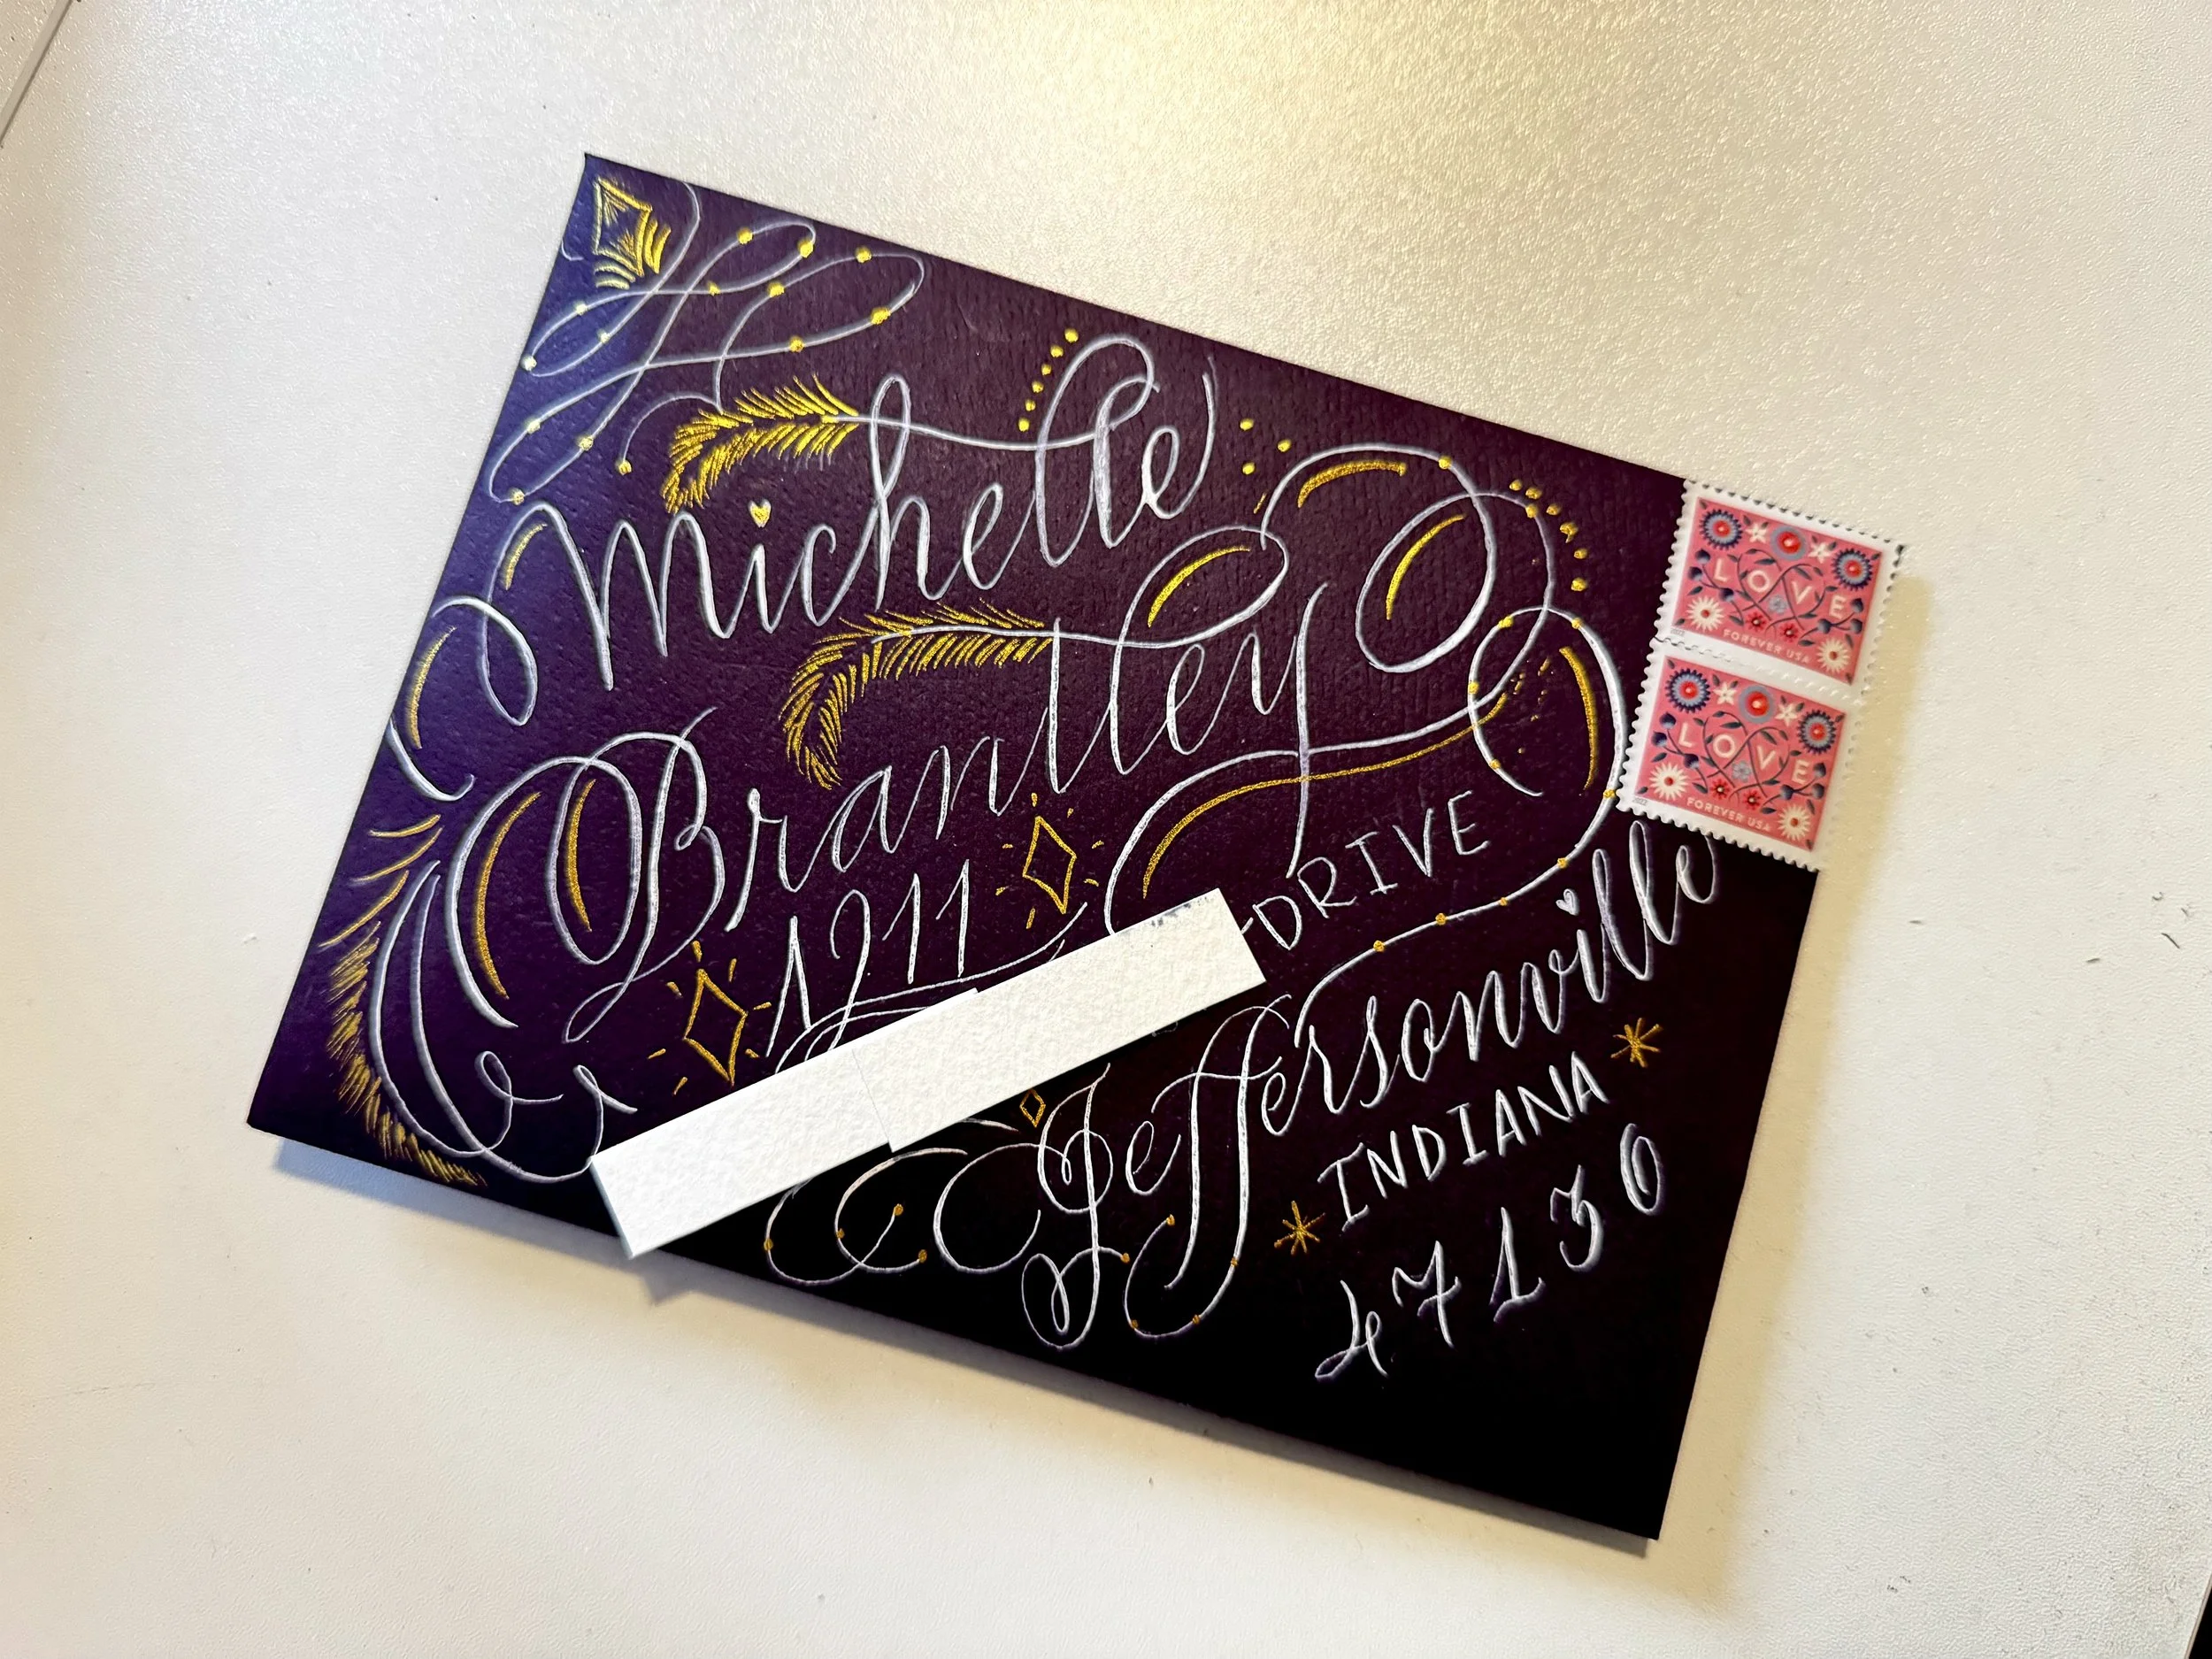 Michelle
Brantley
1211
DRIVE
Jeffersonville
INDIANA
47130
LOVE
FOREVER USA
LOVE
FOREVER USA